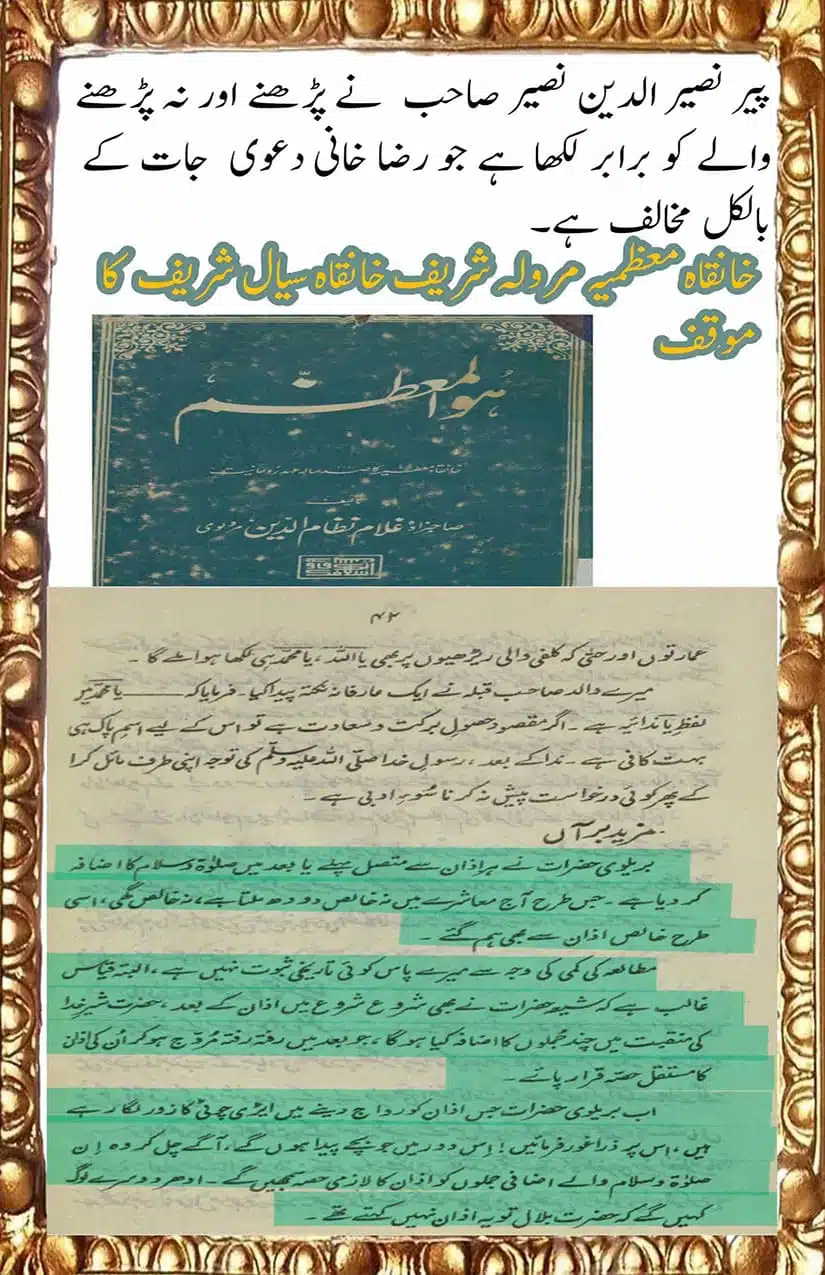 پیر نصیر الدین نصیر صاحب نے پڑھنے اور نہ پڑھنے
والے کو برابر لکھا ہے جو رضا خانی دعوی جات کے
بالکل مخالف ہے۔
خانقاہ معظمیہ مرولہ شریف خانقاہ سیال شریف کا
موقف
ھُوَ المعظّم
خانقاہ معظمیہ کا صد سالہ عہد روحانیت
تالیف
صاحبزادہ غلام نظام الدین مرولوی
۴۲
عمارتوں اور حتیٰ کہ کلفی والی ریڑھیوں پر بھی یا اللہ ، یا محمد ہی لکھا ہوا ملے گا۔
میرے والد صاحب قبلہ نے ایک عارفانہ نکتہ پیدا کیا۔ فرمایا کہ ــــــ یا محمد میں
لفظِ یا ندائیہ ہے۔ اگر مقصود حصولِ برکت و سعادت ہے تو اس کے لیے اسمِ پاک ہی
بہت کافی ہے۔ ندا کے بعد ، رسولِ خدا صلی اللہ علیہ وسلم کی توجہ اپنی طرف مائل کرا
کے پھر کوئی درخواست پیش نہ کرنا سُوءِ ادبی ہے۔
مزید برآں
بریلوی حضرات نے ہر اذان سے متصل پہلے یا بعد میں صلوٰۃ و سلام کا اضافہ
کر دیا ہے۔ جس طرح آج معاشرے میں نہ خالص دودھ ملتا ہے ، نہ خالص گھی ، اسی
طرح خالص اذان سے بھی ہم گئے۔
مطالعہ کی کمی کی وجہ سے میرے پاس کوئی تاریخی ثبوت نہیں ہے ، البتہ قیاس
غالب ہے کہ شیعہ حضرات نے بھی شروع شروع میں اذان کے بعد ، حضرت شیرِ خدا
کی منقبت میں چند جُملوں کا اضافہ کیا ہو گا ، جو بعد میں رفتہ رفتہ مُروّج ہو کر اُن کی اذان
کا مستقل حصّہ قرار پائے۔
اب بریلوی حضرات جس اذان کو رواج دینے میں ایڑی چوٹی کا زور لگا رہے
ہیں ، اس پر ذرا غور فرمائیں ! اِس دور میں جو بچے پیدا ہوں گے ، آگے چل کر وہ اِن
صلوٰۃ و سلام والے اضافی جملوں کو اذان کا لازمی حصہ سمجھیں گے۔ ادھر دوسرے لوگ
کہیں گے کہ حضرت بلال تو یہ اذان نہیں کہتے تھے۔